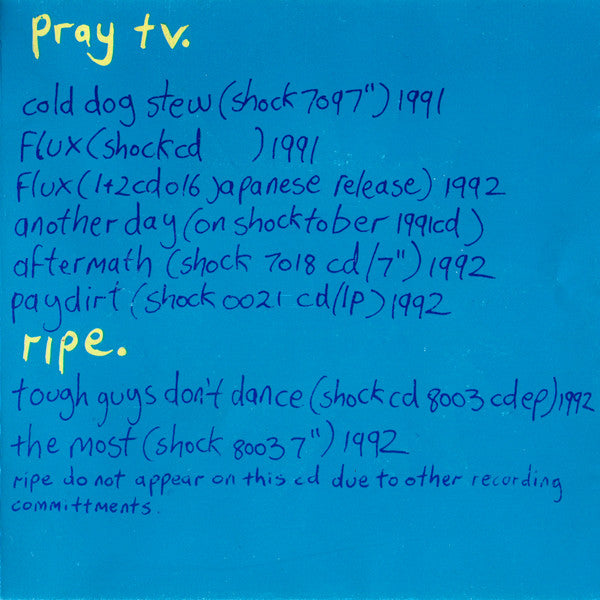 pray tv.
cold dog stew (shock 7097") 1991
flux (shockcd      ) 1991
flux (1+2cd016 japanese release) 1992
another day (on shocktober 1991cd)
aftermath (shock 7018 cd/7") 1992
paydirt (shock 0021 cd/lp) 1992
ripe.
tough guys don't dance (shock cd 8003 cdep) 1992
the most (shock 8003 7") 1992
ripe do not appear on this cd due to other recording
committments.